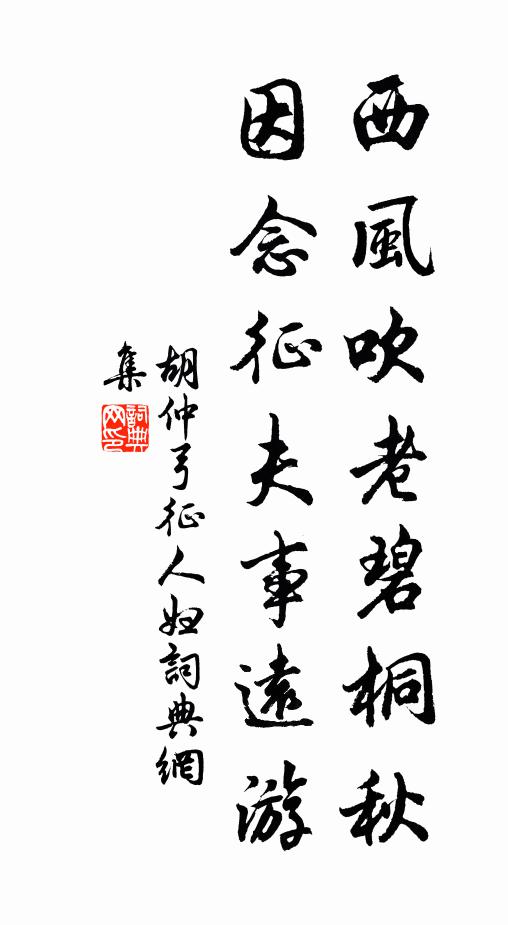 西風吹老碧桐秋
因念征夫事遠游
胡仲弓征人妇詞典網
集
詞典网印